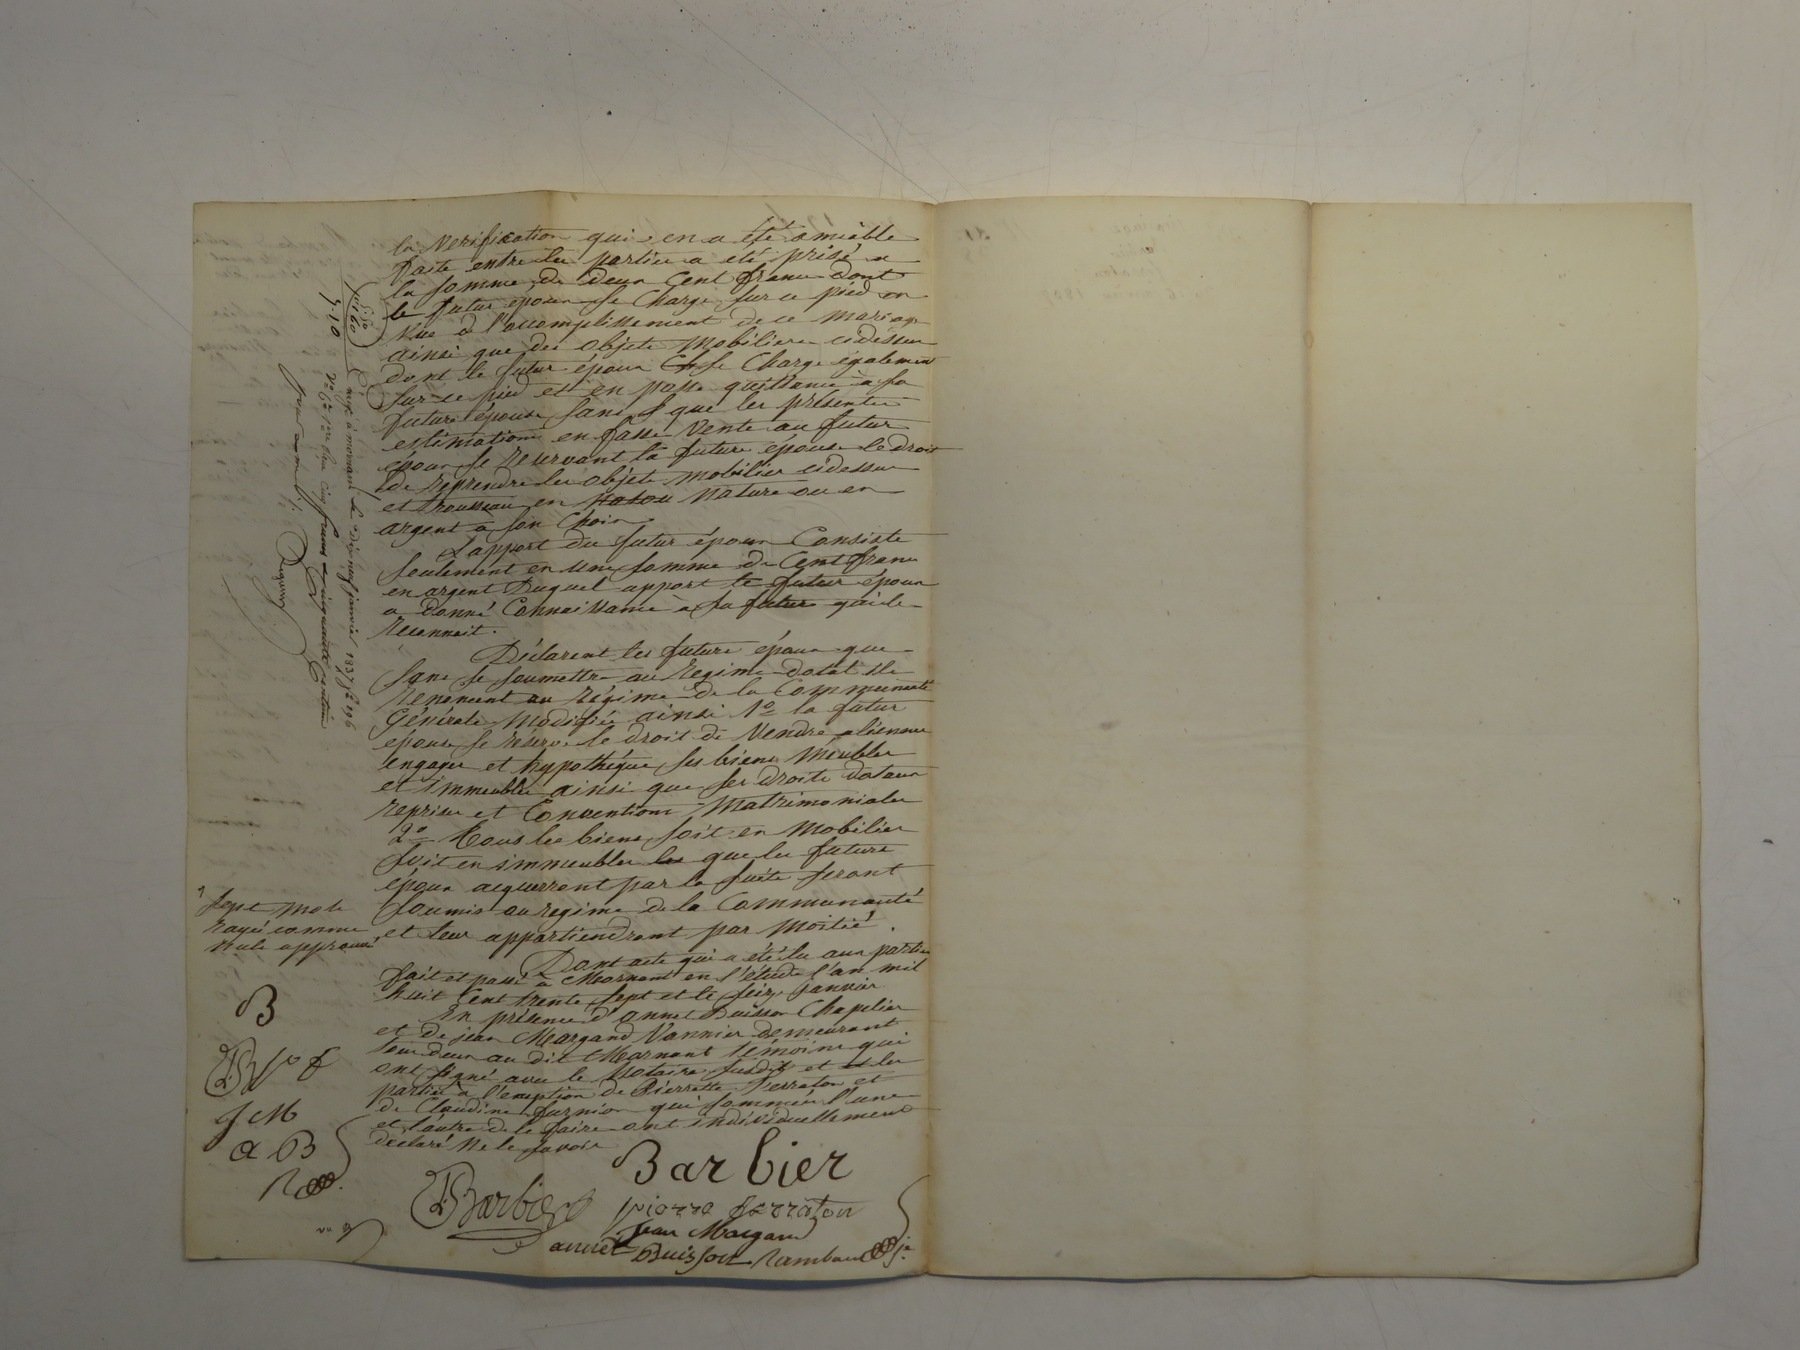 la verification qui en a été amiable
faite entre les parties a été prisé a
la somme de deux Cent francs dont
le futur époux se Charge sur ce pied en
vue d l'accomplissement de ce mariage
ainsi que des objets Mobiliers cidessus
dont le futur époux se Charge également
sur ce pied et en passe quittance à sa
future épouse sans que les présentes
estimations en fasse Vente au futur
époux se reservant la future épouse le droit
de reprendre les objets mobilier cidessus
et trousseau en nature ou en
argent a son Choix
L'apport du futur époux Consiste
seulement en une somme de Cent francs
en argent Duquel apport le futur époux
a donné Connaissance a sa future qui le
reconnait.
Déclarent les future époux que
sans se soumettre au Regime dotal ils
renoncent au régime de la Communauté
Générale Modifiée ainsi 1o la futur
épouse se réserve le droit de Vendre aliener
engager et hypothéquer ses biens Meubles
et immeubles ainsi que ses droits dotaux
reprises et Conventions Matrimoniales
2o Tous les biens soit en Mobilier
soit en immeubles les que les future
époux acquerront par la suite seront
soumis au regime de la Communauté
et leur appartiendront par Moitié.
Dont acte qui a été lu aux parties
fait et passé à Mornant en l'étude l'an mil
huit Cent trente sept et le seize janvier
En présence d'annet Buisson Chapelier
et de jean Margand Vannier demeurant
tous deux au dit Mornant témoins qui
ont signé avec le Notaire susdit et les
parties a l'exeption de Pierrette Ferraton et
de Claudine furnion qui sommées l'une
et l'autre de le faire ont individuellement
declaré Ne le savoir
Barbier
Barbier
pierre ferraton
Jean Margand
annet Buisson Rambaud
Sept mots
rayés comme
nuls approuvé
B
B
P f
J M
a B
R
Enregé à mornant le dix neuf janvier 1837 fo 196
Vo Co 1ere Reçu cinq francs cinquante centimes
5.50
55
6.05